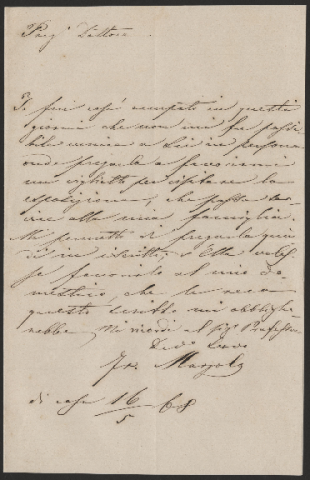 Preg. Dottore
Io fui così occupato in questi
giorni che non mi fu possi-
bile venire a Lei in persona
onde pregarla a favorirmi
un viglietto per visitare la
esposizione, che possa ser-
vire alla mia famiglia.
Mi permetto di pregarla quin-
di in iscritto, e Ella
se favorirlo al mio do-
mestico che le reca
questo scritto mi obblighe-
rebbe. Mi ricordi al sigr Professore
Devo Servo
di casa 16/5 68